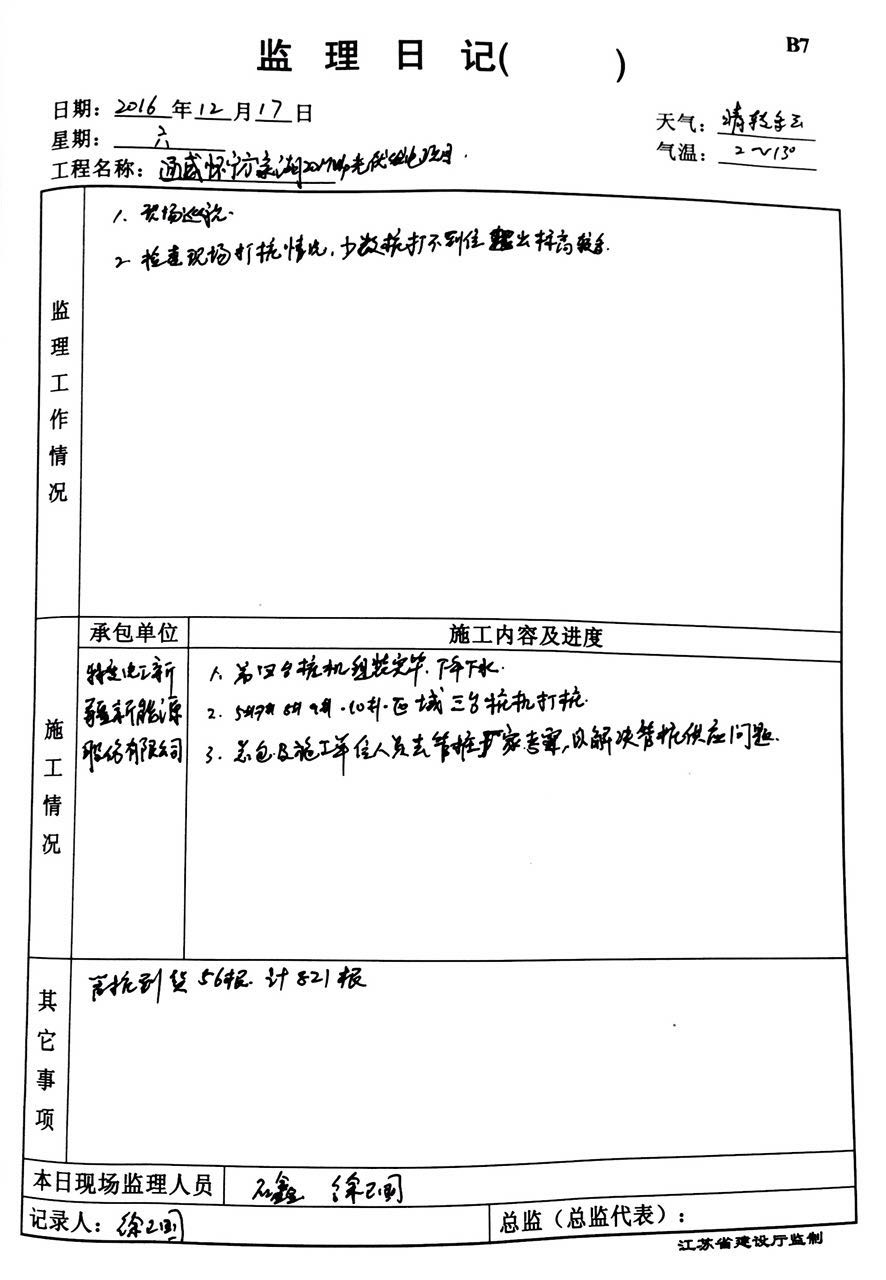 B7
监 理 日 记( )
日期：2016年12月17日
天气：晴转多云
星期：六
气温：2～13°
工程名称：通威怀 湖20 光伏发电项目.
监理工作情况
1. 现场巡视.
2 检查现场打桩情况，少数桩打不到位 出标高较多.
承包单位
施工内容及进度
施工情况
特变电工新
疆新能源
股份有限公司
1. 第四台桩机组装完毕，下午下水.
2. 5# 8# 9# 10#区域三台桩机打桩.
3. 总包及施工单位人员去管桩厂家 ，以解决管桩供应问题.
其它事项
管桩到货56根. 计821根
本日现场监理人员
石鑫 徐卫国
记录人：徐卫国
总监（总监代表）：
江苏省建设厅监制